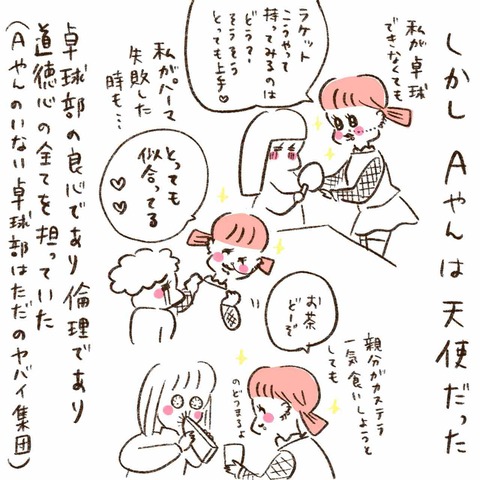 しかしAやんは天使だった
私が卓球
できなくても
ラケット
こうやって
持ってみるのは
どう?
そうそう
とっても上手♡
私がパーマ
失敗した
時も…
とっても
似合ってる
♡♡
お茶
どーぞ
親分がカステラ
一気食いしようと
しても
のどつまるよ
卓球部の良心であり倫理であり
道徳心の全てを担っていた
(Aやんのいない卓球部はただのヤバイ集団)